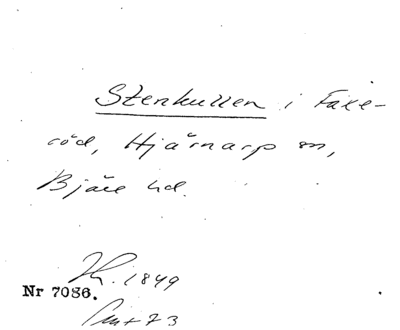 Stenkullen i Faxe-
röd, Hjärnarp sn,
Bjäre hd.
1849
Nr 7086.
73